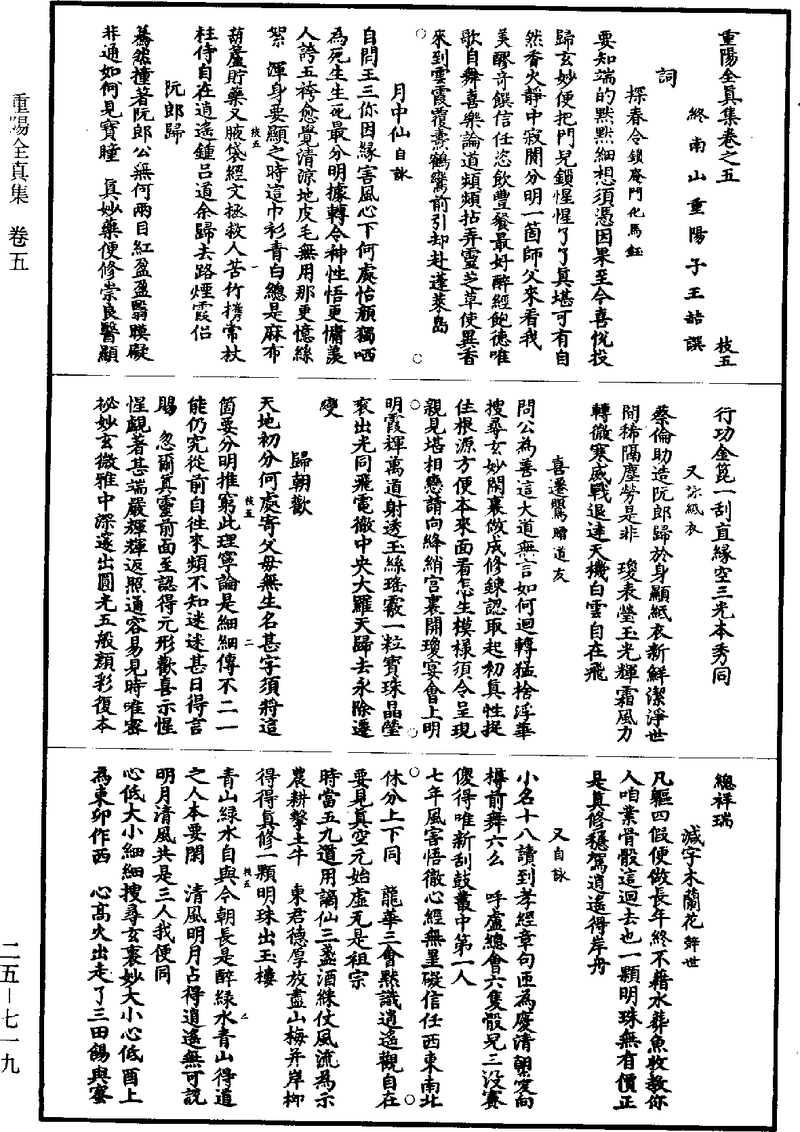 重陽全真集卷之五
枝五
終南山重陽子王嚞譔
詞
探春令鎖庵門化馬鈺
要知端的黙黙細想須憑因果至令喜恱投
歸玄妙便把門兒鎖惺惺了了真堪可有自
然香火靜中寂闃分明一箇師父來看我
美醪竒饌信任恣飲豐餐最好醉經飽德唯
歌自舞喜樂論道頻頻拈弄靈芝草使異香
來到雲霞覆燾鶴鸞前引却赴蓬萊島
月中仙自詠
自問王三你因緣害風心下何處怡顔獨哂
為死生生死最分明據轉令神性悟更慵羡
人誇五袴愈覺清涼地皮毛無用那更憶絲
絮 渾身要顯之時這巾衫青白總是麻布
葫蘆貯藥又腋袋經文拯救人苦竹携常杖
柱侍自在逍遙鍾呂道余歸去路煙霞侣
阮郎歸
驀然撞著阮郎公無何兩目紅盈盈翳膜礙
非通如何見寳瞳 真妙藥便修崇良醫顯
行功金箆一刮直緣空三光本秀同
又詠紙衣
蔡倫助造阮郎歸於身顯紙衣新鮮潔淨世
間稀隔塵勞是非 瓊表瑩玉光輝霜風力
轉微寒威戰退達天機白雲自在飛
喜遷鶯贈道友
問公為善這大道無言如何迴轉猛捨浮華
搜尋玄妙閑裏做成修鍊認取起初真性捉
住根源方便本來面看怎生模樣須令呈現
親見堪相戀請向絳綃宫裏開瓊宴會上明
明霞輝萬道射透玉絲瑤霰一粒寳珠晶瑩
衮出光同飛電徹中央大羅天歸去永除遷
變
歸朝歡
天地初分何處寄父母無生名甚字須將這
箇要分明推窮此理寧論是細細傳不二一
能仍究從前自徃來頻不知迷迷甚日得言
賜 忽爾真靈前面至認得元形歡喜示惺
惺覰著甚端嚴輝輝返照通容易見時唯密
祕妙玄微雅中深邃出圓光五般顔彩復本
總祥瑞
減字木蘭花辤世
凡軀四假便做長年終不藉水葬魚收教你
人咱業骨骰這迴去也一顆明珠無有價正
是真修穩駕逍遙得岸舟
又自詠
小名十八讀到孝經章句匝為慶清朝笑向
樽前舞六么 呼盧總會六隻骰兒三沒賽
傻得唯新刮鼓叢中第一人
七年風害悟徹心經無罣礙信任西東南北
休分上下同 龍華三會黙識逍遙觀自在
要見真空元始虚无是祖宗
時當五九遇用謫仙三盞酒綵仗風流為示
農耕擊土牛 東君德厚放盡山梅并岸柳
得得真修一顆明珠出玉樓
青山緑水自與令朝長是醉緑水青山得道
之人本要閑 清風明月占得逍遙無可説
明月清風共是三人我便同
心低大小細細搜尋玄裏妙大小心低酉上
為東卯作西 心髙火出走了三田餳與蜜
重陽全真集 卷五
二五—七一九